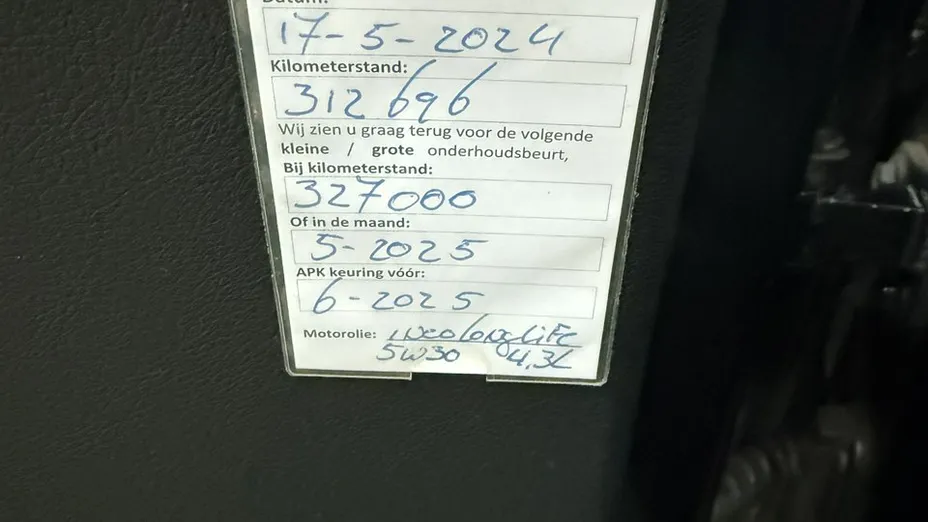 Datum:
17-5-2024
Kilometerstand:
312 696
Wij zien u graag terug voor de volgende
kleine / grote onderhoudsbeurt,
Bij kilometerstand:
327000
Of in de maand:
5-2025
APK keuring vóór:
6-2025
Motorolie: longLiFe
5W30 4,3L